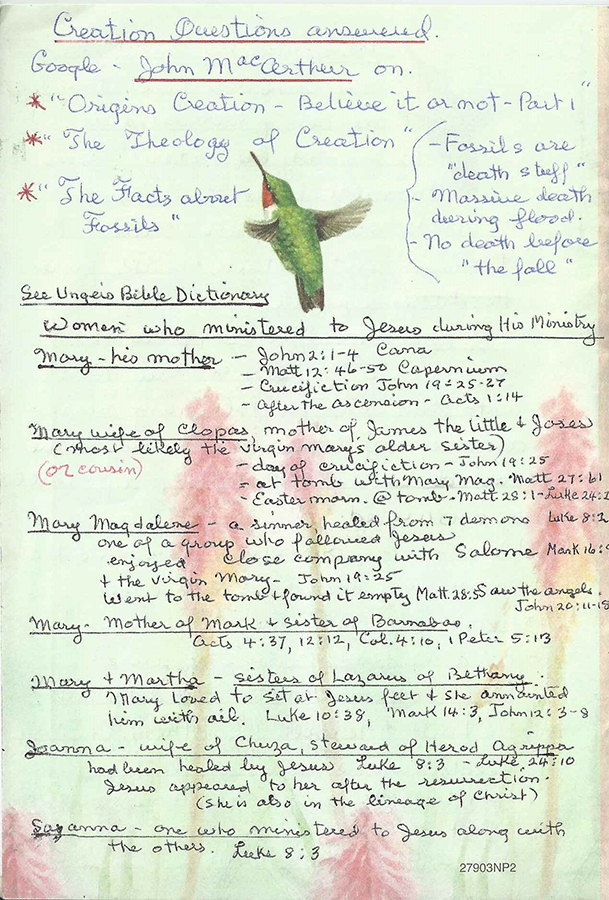 Creation Questions answered.
Google - John MacArthur on.
* "Origins Creation - Believe it or not - Part 1"
* "The Theology of Creation"
* "The Facts about
Fossils"
- Fossils are
"death stuff"
- Massive death
during flood.
- No death before
"the fall"
See Unger's Bible Dictionary
Women who ministered to Jesus during His Ministry
Mary - his mother - John 2:1-4 Cana
- Matt 12:46-50 Capernium
- Crucifiction John 19:25-27
- After the ascension - Acts 1:14
Mary wife of Clopas, mother of James the little & Joses
(most likely the virgin mary's older sister)
(or cousin)
- day of crucifiction - John 19:25
- at tomb with Mary Mag. Matt 27:61
- Easter morn. @ tomb - Matt 28:1 - Luke 24:
Mary Magdalene - a sinner, healed from 7 demons Luke 8:2
one of a group who followed Jesus
enjoyed close company with Salome Mark 16:
& the virgin Mary - John 19:25
went to the tomb & found it empty Matt. 28:5 Saw the angels.
John 20:11-18
Mary - Mother of Mark & sister of Barnabas.
Acts 4:37, 12:12, Col. 4:10, 1 Peter 5:13
Mary & Martha - sisters of Lazarus of Bethany.
Mary loved to set at Jesus feet & she annointed
him with oil. Luke 10:38, Mark 14:3, John 12:3-8
Joanna - wife of Chuza, steward of Herod Agrippa
had been healed by Jesus Luke 8:3 - Luke 24:10
Jesus appeared to her after the resurrection.
(She is also in the lineage of Christ)
Suzanna - one who ministered to Jesus along with
the others. Luke 8:3
27903NP2